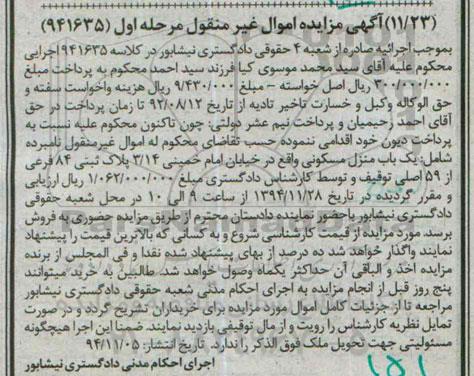 (۱۱/۲۳) آگهی مزایده اموال غیر منقول مرحله اول (۹۴۱۶۳۵)
بموجب اجرائیه صادره از شعبه ۴ حقوقی دادگستری نیشابور در کلاسه ۹۴۱۶۳۵ اجرایی
محکوم علیه آقای سید محمد موسوی کیا فرزند سید احمد محکوم به پرداخت مبلغ
۳۰۰/۰۰۰/۰۰۰ ریال اصل خواسته - مبلغ ۹/۴۳۰/۰۰۰ ریال هزینه واخواست سفته و
حق الوکاله وکیل و خسارت تاخیر تادیه از تاریخ ۹۲/۰۸/۱۲ تا زمان پرداخت در حق
آقای احمد رحیمیان و پرداخت نیم عشر دولتی: چون تاکنون محکوم علیه نسبت به
پرداخت دیون خود اقدامی ننموده حسب تقاضای محکوم له اموال غیرمنقول نامبرده
شامل: یک باب منزل مسکونی واقع در خیابان امام خمینی ۳/۱۴ پلاک ثبتی ۸۴ فرعی
از ۵۹ اصلی توقیف و توسط کارشناس دادگستری مبلغ ۱/۰۶۲/۰۰۰/۰۰۰ ریال ارزیابی
و مقرر گردیده در تاریخ ۱۳۹۴/۱۱/۲۸ از ساعت ۹ الی ۱۰ در محل شعبه حقوقی
دادگستری نیشابور باحضور نماینده دادستان محترم از طریق مزایده حضوری به فروش
برسد. مورد مزایده از قیمت کارشناسی شروع و به کسانی که بالاترین قیمت را پیشنهاد
نمایند واگذار خواهد شد ده درصد از بهای پیشنهاد شده نقدا و فی المجلس از برنده
مزایده اخذ و الباقی آن حداکثر یکماه وصول خواهد شد. طالبین به خرید میتوانند
پنج روز قبل از انجام مزایده به اجرای احکام مدنی شعبه حقوقی دادگستری نیشابور
مراجعه تا از جزئیات کامل اموال مورد مزایده برای خریداران تشریح گردد و در صورت
تمایل نظریه کارشناس را رویت و از مال توقیفی بازدید نمایند. ضمنا این اجرا هیچگونه
مسئولیتی جهت تحویل ملک فوق الذکر را ندارد. تاریخ انتشار: ۹۴/۱۱/۰۵
اجرای احکام مدنی دادگستری نیشابور